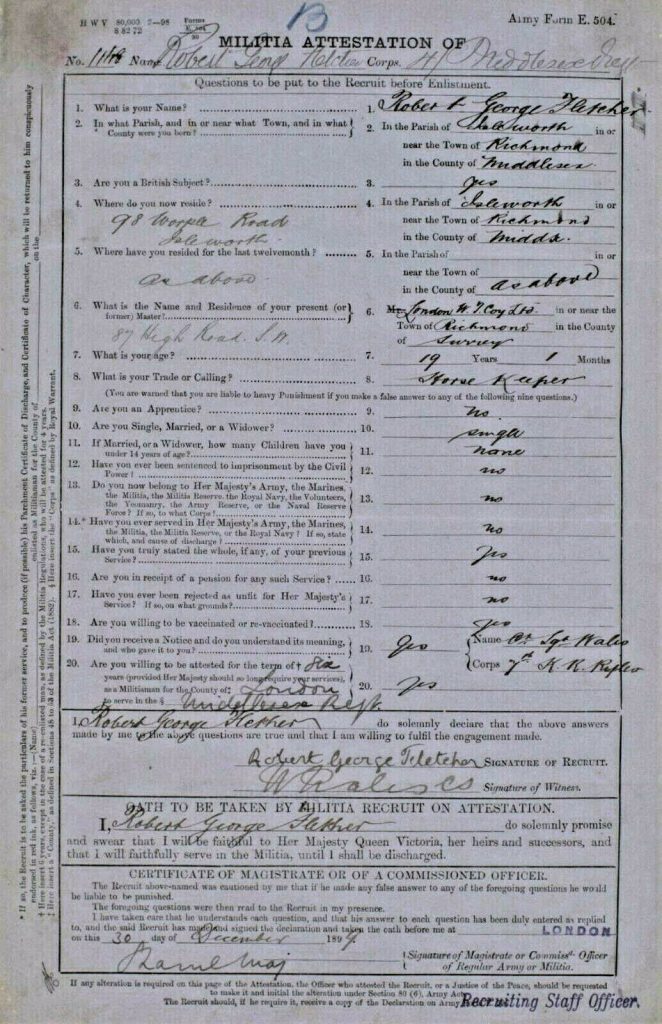 B
H W V 80,000 2—98 Forms
8 8272 E. 504
Army Form E. 504.
MILITIA ATTESTATION OF
No. Name Robert Corps. Middlesex
Questions to be put to the Recruit before Enlistment.
1. What is your Name? 1. Robert George Fletcher
2. In what Parish, and in or near what Town, and in what County were you born? 2. In the Parish of Isleworth in or
near the Town of Richmond
in the County of Middlesex
3. Are you a British Subject? 3. Yes
4. Where do you now reside? 4. In the Parish of Isleworth in or
98 Worple Road near the Town of Richmond
Isleworth in the County of Middx.
5. Where have you resided for the last twelvemonth? 5. In the Parish of in or
as above near the Town of
in the County of as above
6. What is the Name and Residence of your present (or former) Master? 6. Mr. London Coy Ltd. in or near the
87 High Road. Town of Richmond in the County
of Surrey
7. What is your age? 7. 19 Years 1 Months
8. What is your Trade or Calling? 8. Horse Keeper
(You are warned that you are liable to heavy Punishment if you make a false answer to any of the following nine questions.)
9. Are you an Apprentice? 9. no
10. Are you Single, Married, or a Widower? 10. single
11. If Married, or a Widower, how many Children have you
under 14 years of age? 11. none
12. Have you ever been sentenced to imprisonment by the Civil
Power? 12. no
13. Do you now belong to Her Majesty's Army, the Marines,
the Militia, the Militia Reserve, the Royal Navy, the Volunteers,
the Yeomanry, the Army Reserve, or the Naval Reserve
Force? If so, to what Corps? 13. no
14.* Have you ever served in Her Majesty's Army, the Marines,
the Militia, the Militia Reserve, or the Royal Navy? If so, state
which, and cause of discharge? 14. no
15. Have you truly stated the whole, if any, of your previous
Service? 15. yes
16. Are you in receipt of a pension for any such Service? 16. no
17. Have you ever been rejected as unfit for Her Majesty's
Service? If so, on what grounds? 17. no
18. Are you willing to be vaccinated or re-vaccinated? 18. yes
19. Did you receive a Notice and do you understand its meaning,
and who gave it to you? 19. yes Name Sgt Wales
Corps 7th K. R. Rifles
20. Are you willing to be attested for the term of † Six
years (provided Her Majesty should so long require your services),
as a Militiaman for the County of ‡ London 20. yes
to serve in the § Middlesex Regt.
I, Robert George Fletcher do solemnly declare that the above answers
made by me to the above questions are true and that I am willing to fulfil the engagement made.
Robert George Fletcher SIGNATURE OF RECRUIT.
Signature of Witness.
OATH TO BE TAKEN BY MILITIA RECRUIT ON ATTESTATION.
I, Robert George Fletcher do solemnly promise
and swear that I will be faithful to Her Majesty Queen Victoria, her heirs and successors, and
that I will faithfully serve in the Militia, until I shall be discharged.
CERTIFICATE OF MAGISTRATE OR OF A COMMISSIONED OFFICER.
The Recruit above-named was cautioned by me that if he made any false answer to any of the foregoing questions he would
be liable to be punished.
The foregoing questions were then read to the Recruit in my presence.
I have taken care that he understands each question, and that his answer to each question has been duly entered as replied
to, and the said Recruit has made and signed the declaration and taken the oath before me at LONDON
on this 30 day of December 189
Signature of Magistrate or Commissd. Officer
of Regular Army or Militia.
If any alteration is required on this page of the Attestation, the Officer who attested the Recruit, or a Justice of the Peace, should be requested
to make it and initial the alteration under Section 80 (6), Army Act.
The Recruit should, if he require it, receive a copy of the Declaration on Army
Recruiting Staff Officer.
* If so, the Recruit is to be asked the particulars of his former service, and to produce (if possible) his Parchment Certificate of Discharge, and Certificate of Character, which will be returned to him conspicuously
endorsed in red ink, as follows, viz.:—(Name) enlisted as Militiaman for the County of on the
† Here insert 6 years, except in the case of a re-enlisted man, as defined by the Militia Regulations, who will be attested for 4 years.
‡ Here insert a "County," as defined in Sections 48 to 53 of the Militia Act (1882). § Here insert the "Corps" as defined by Royal Warrant.